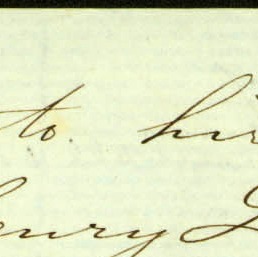 to hi
enry